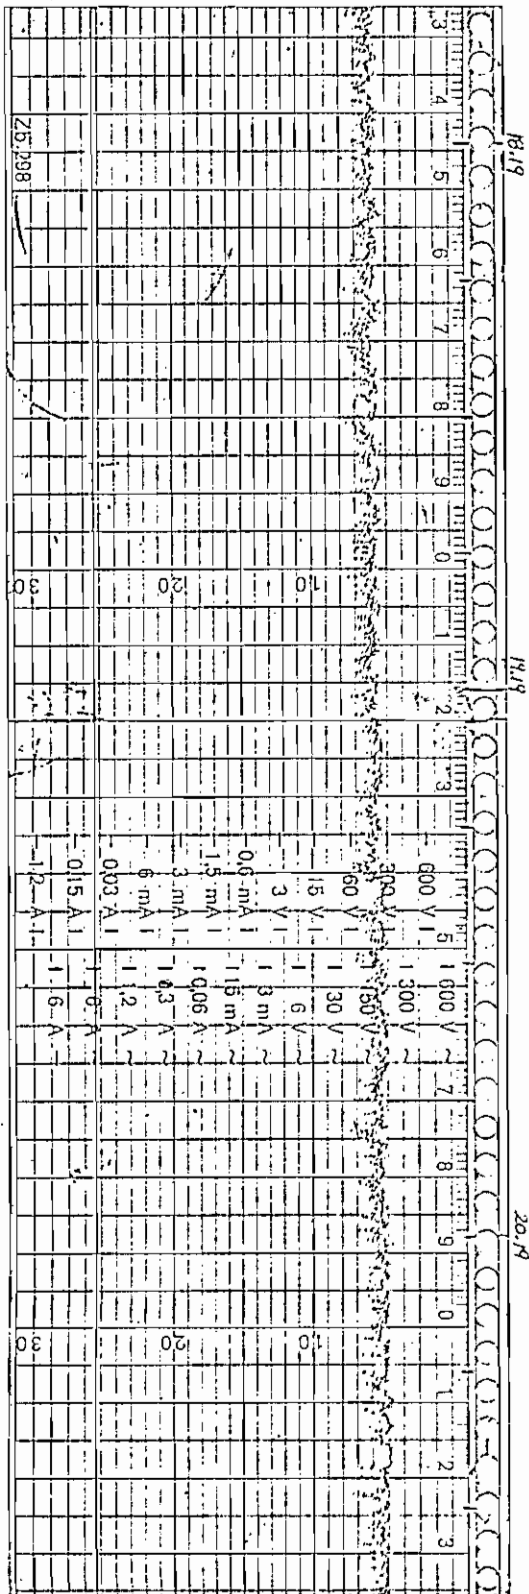 18.19
19.19
20.19
3 4 5 6 7 8 9 0 1 2 3 5 7 8 9 0 1 2 3
10 10
20 20
30 30
600 V
300 V
60 V
15 V
3 V
0,6 mA
1,5 mA
3 mA
6 mA
0,03 A
0,15 A
1,2 A
600 V ~
300 V ~
150 V ~
30 V ~
6 V ~
3 mA ~
15 mA ~
0,06 A ~
0,3 A ~
1,2 A ~
6 A ~